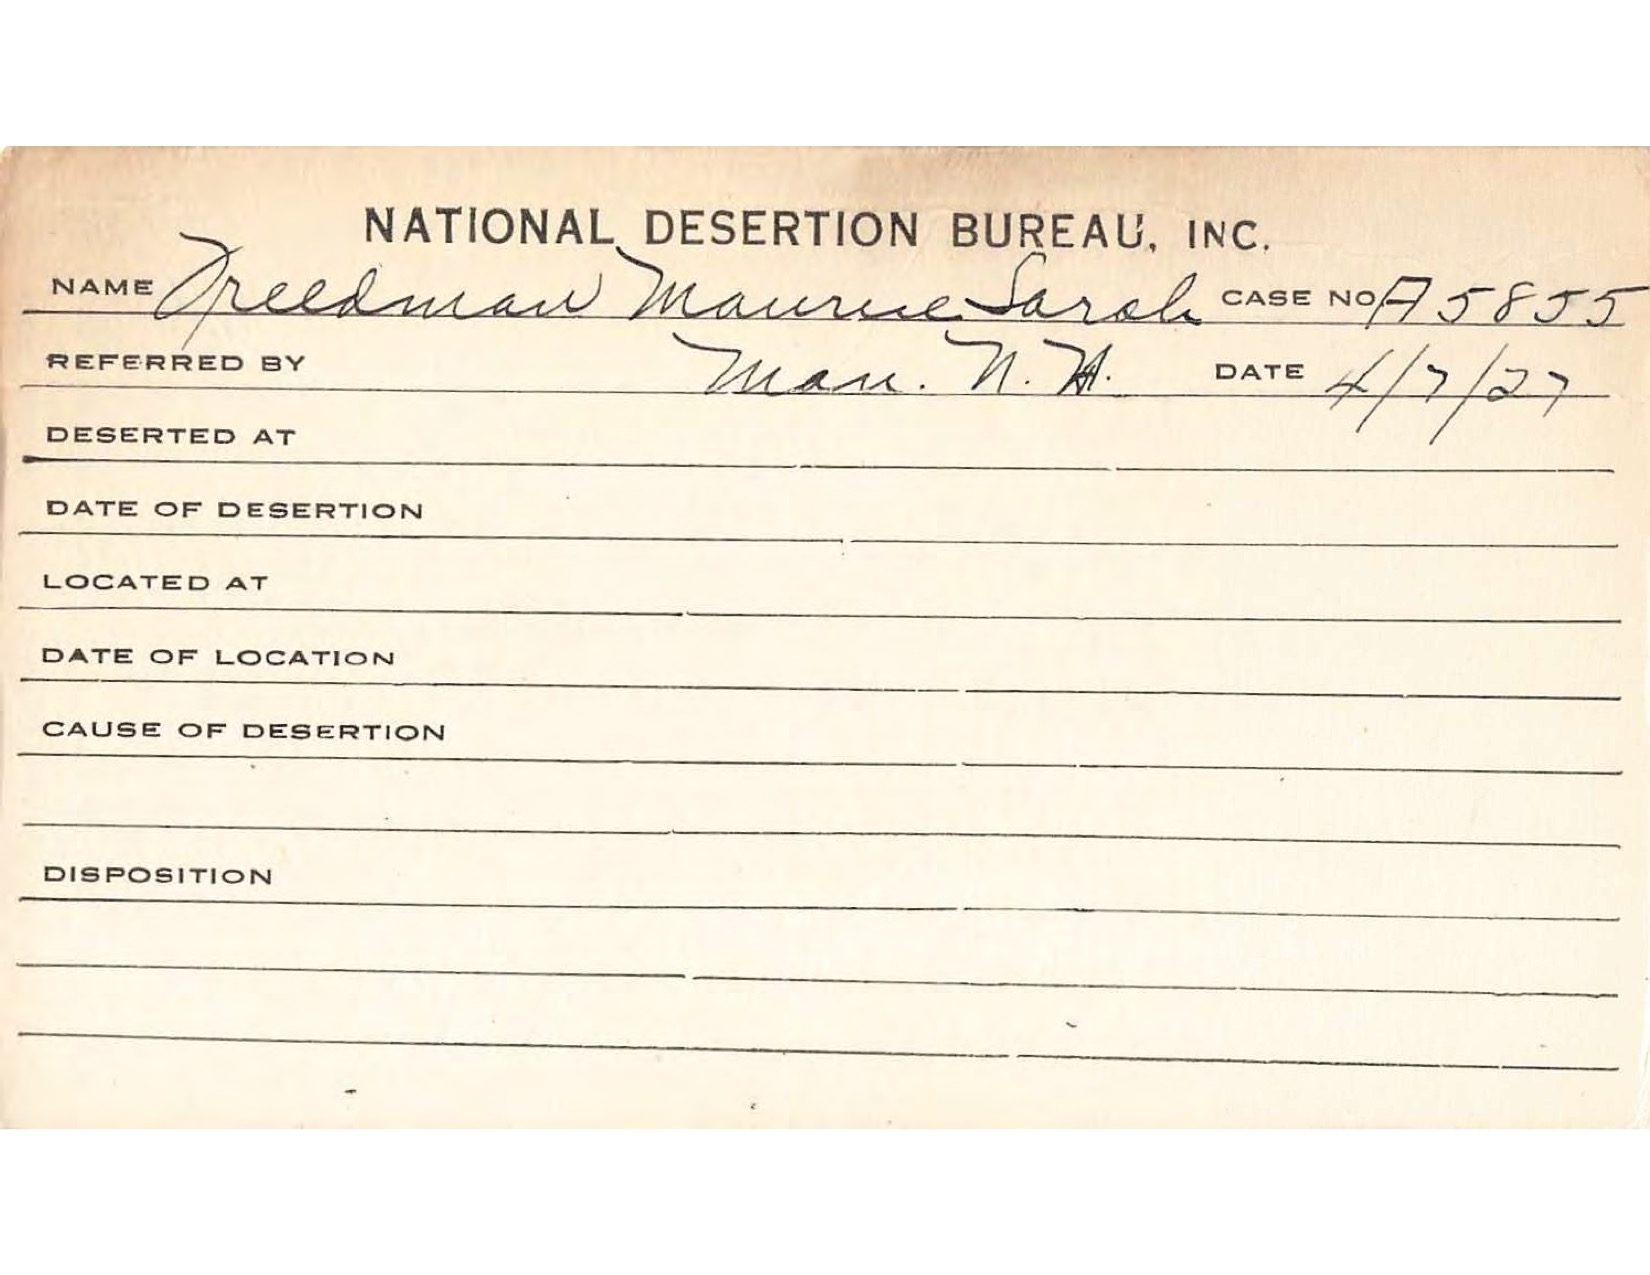 NATIONAL DESERTION BUREAU, INC.
NAME Freedman Maurice Sarah CASE NO. A5855
REFERRED BY Man. N. H. DATE 4/7/27
DESERTED AT
DATE OF DESERTION
LOCATED AT
DATE OF LOCATION
CAUSE OF DESERTION
DISPOSITION